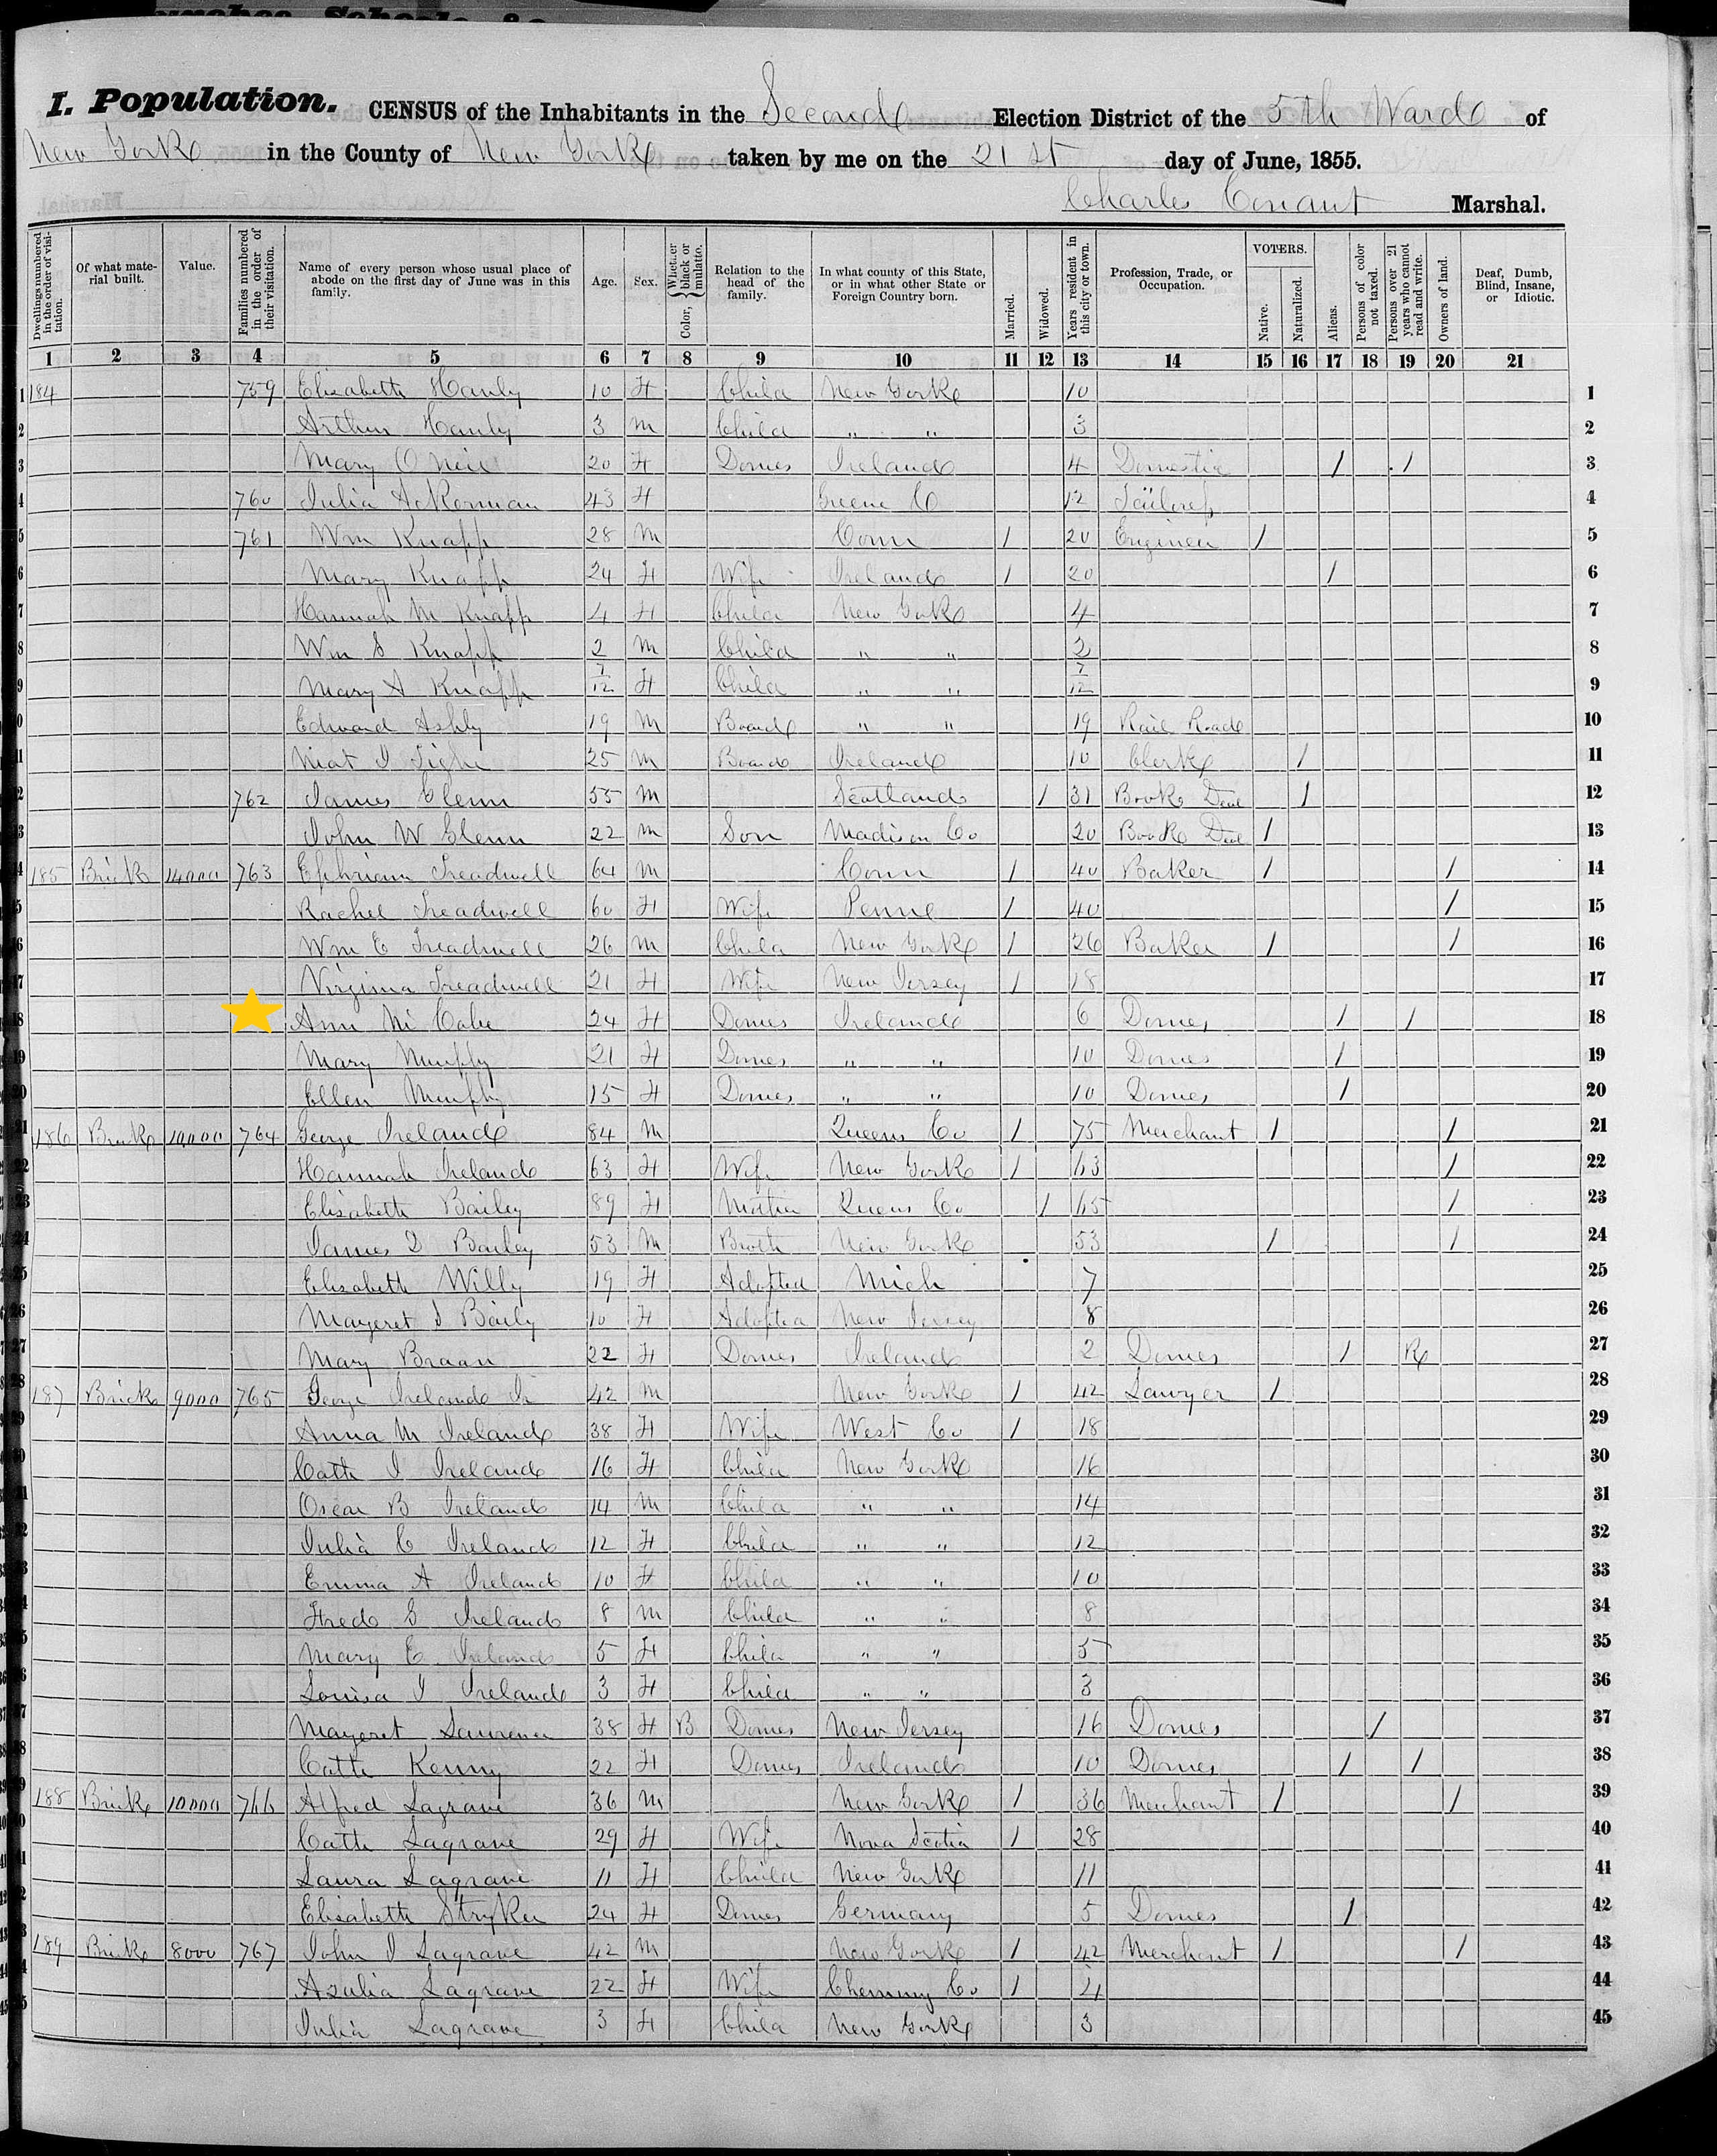 I. Population. CENSUS of the Inhabitants in the Second Election District of the 5th Ward of
New York in the County of New York taken by me on the 21st day of June, 1855.
Charles Conant Marshal.
Dwellings numbered in the order of visitation. Of what material built. Value. Families numbered in the order of their visitation. Name of every person whose usual place of abode on the first day of June was in this family. Age. Sex. Color, Whether black or mulatto. Relation to the head of the family. In what county of this State, or in what other State or Foreign Country born. Married. Widowed. Years resident in this city or town. Profession, Trade, or Occupation. VOTERS. Native. Naturalized. Aliens. Persons of color not taxed. Persons over 21 years who cannot read and write. Owners of land. Deaf, Dumb, Blind, Insane, or Idiotic.
1 2 3 4 5 6 7 8 9 10 11 12 13 14 15 16 17 18 19 20 21
1 184 759 Elizabeth Hanly 10 F Child New York 10 1
2 Arthur Hanly 3 M Child " " 3 2
3 Mary O Neil 20 F Domes Ireland 4 Domestic / / 3
4 760 Julia Ackerman 43 F Greene Co 12 Tailoress 4
5 761 Wm Knapp 28 M Conn / 20 Engineer / 5
6 Mary Knapp 24 F Wife Ireland / 20 / 6
7 Hannah M Knapp 4 F Child New York 4 7
8 Wm S Knapp 2 M Child " " 2 8
9 Mary A Knapp 7/12 F Child " " 7/12 9
10 Edward Ashly 19 M Board " " 19 Rail Road 10
11 J Tighe 25 M Board Ireland 10 Clerk / 11
12 762 James Glenn 55 M Scotland / 31 Book Deal / 12
13 John W Glenn 22 M Son Madison Co 20 Book Deal / 13
14 185 Brick 14000 763 Ephriam Treadwell 64 M Conn / 40 Baker / / 14
15 Rachel Treadwell 60 F Wife Penne / 40 / 15
16 Wm E Treadwell 26 M Child New York / 26 Baker / / 16
17 Virginia Treadwell 21 F Wife New Jersey / 18 17
18 Ann Mc Cabe 24 F Domes Ireland 6 Domes / / 18
19 Mary Murphy 21 F Domes " " 10 Domes / 19
20 Ellen Murphy 15 F Domes " " 10 Domes / 20
21 186 Brick 10,000 764 George Ireland 84 M Queens Co / 75 Merchant / / 21
22 Hannah Ireland 63 F Wife New York / 63 / 22
23 Elizabeth Bailey 89 F Mother Queens Co / 65 / 23
24 James D Bailey 53 M Broth New York 53 / / 24
25 Elizabeth Willy 19 F Adopted Mich 7 25
26 Margeret J Baily 10 F Adopted New Jersey 8 26
27 Mary Braan 22 F Domes Ireland 2 Domes / R 27
28 187 Brick 9000 765 George Ireland Jr 42 M New York / 42 Lawyer / 28
29 Anna M Ireland 38 F Wife West Co / 18 29
30 Cath J Ireland 16 F Child New York 16 30
31 Oscar B Ireland 14 M Child " " 14 31
32 Julia C Ireland 12 F Child " " 12 32
33 Emma A Ireland 10 F Child " " 10 33
34 Fred G Ireland 8 M Child " " 8 34
35 Mary E Ireland 5 F Child " " 5 35
36 Louisa J Ireland 3 F Child " " 3 36
37 Margeret Laurence 38 F B Domes New Jersey 16 Domes / 37
38 Cath Kenny 22 F Domes Ireland 10 Domes / / 38
39 188 Brick 10000 766 Alfred Lagrave 36 M New York / 36 Merchant / / 39
40 Cath Lagrave 29 F Wife Nova Scotia / 28 40
41 Laura Lagrave 11 F Child New York 11 41
42 Elizabeth Stryker 24 F Domes Germany 5 Domes / 42
43 189 Brick 8000 767 John J Lagrave 42 M New York / 42 Merchant / / 43
44 Azalia Lagrave 22 F Wife Chemung Co / 4 44
45 Julia Lagrave 3 F Child New York 3 45